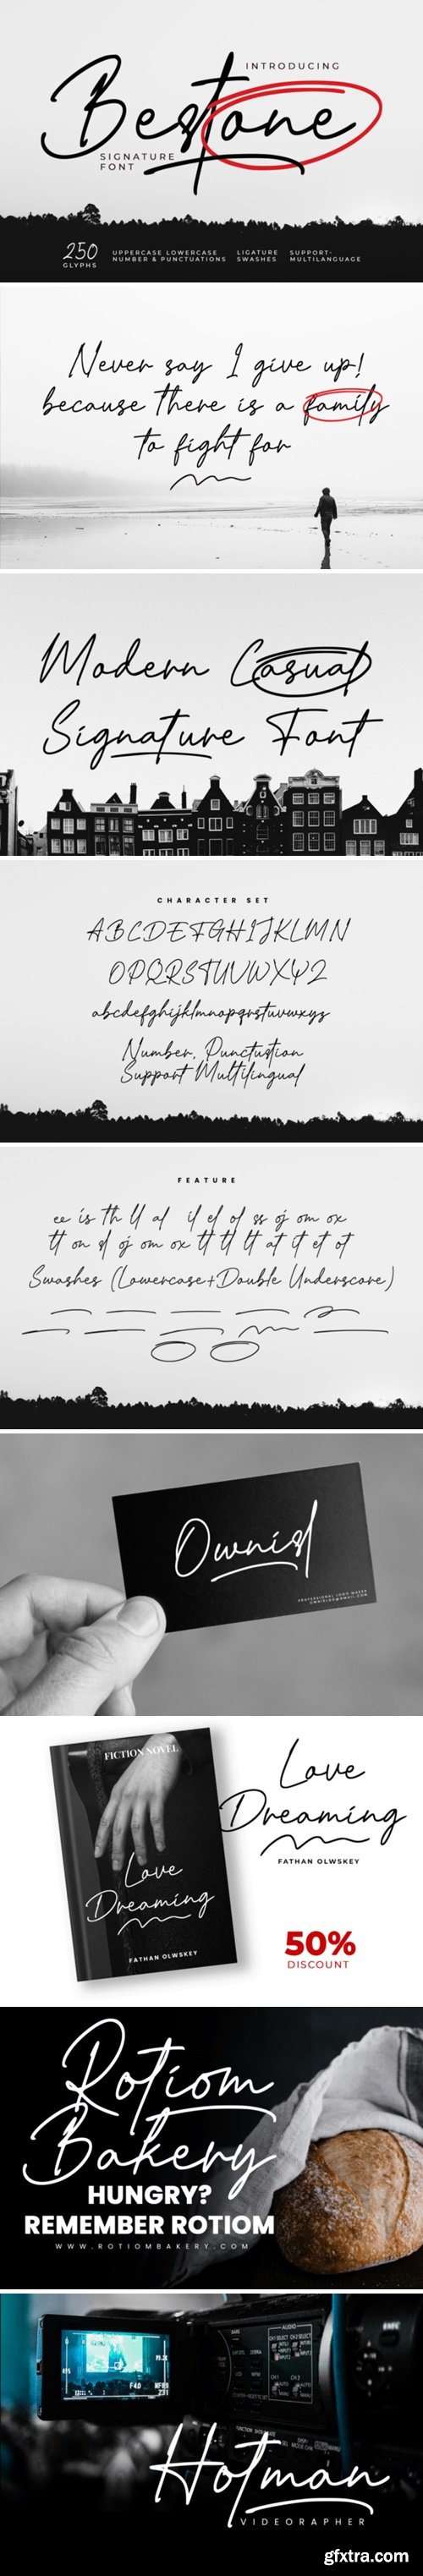 INTRODUCING
Bestone
SIGNATURE
FONT
250
GLYPHS
UPPERCASE LOWERCASE
NUMBER & PUNCTUATIONS
LIGATURE
SWASHES
SUPPORT-
MULTILANGUAGE
Never say I give up!
because there is a family
to fight for
Modern Casual
Signature Font
CHARACTER SET
ABCDEFGHIJKLMN
OPQRSTUVWXYZ
abcdefghijklmnopqrstuvwxyz
Number, Punctuation
Support Multilingual
FEATURE
ee is th ll al il el ol ss oj om ox
tt on sl oj om ox tt tl lt at it et ot
Swashes (Lowercase+Double Underscore)
Ownisl
PROFESSIONAL LOGO MAKER
FICTION NOVEL
Love
Dreaming
FATHAN OLWSKEY
Love
Dreaming
FATHAN OLWSKEY
50%
DISCOUNT
Rotiom
Bakery
HUNGRY?
REMEMBER ROTIOM
WWW.ROTIOMBAKERY.COM
AUDIO
F4.0
Hotman
VIDEORAPHER
gfxtra.com